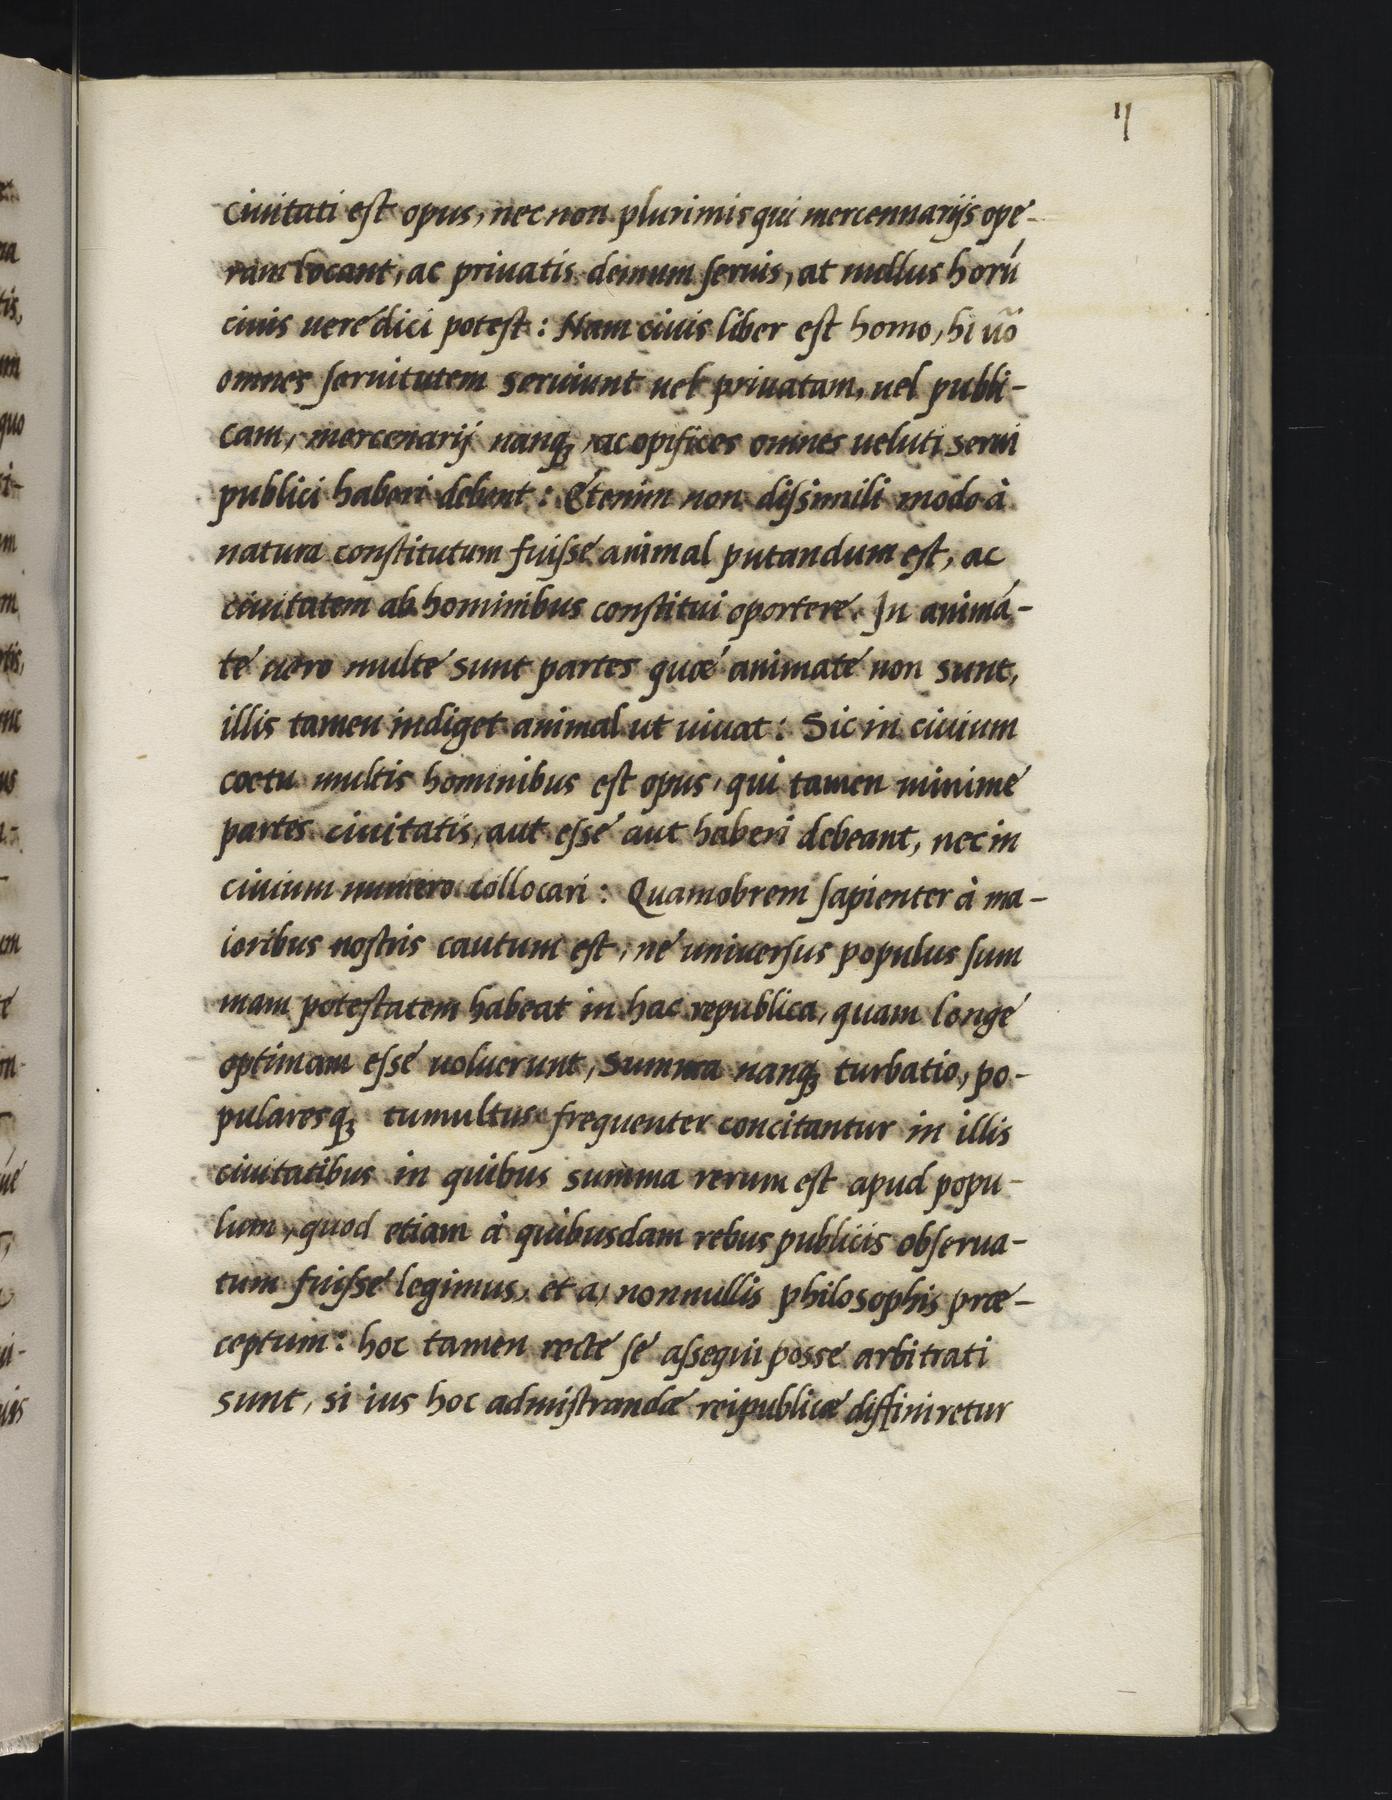 11
ciuitati est opus, nec non plurimis qui mercennarijs ope-
ram locant, ac priuatis demum seruis, at nullus horũ
ciuis uere dici potest: Nam ciuis liber est homo, hi uõ
omnes seruitutem seruiunt uel priuatam, uel publi-
cam, mercenarij nanq; ac opifices omnes ueluti serui
publici haberi debent: Etenim non dissimili modo à
natura constitutum fuisse animal putandum est, ac
ciuitatem ab hominibus constitui oportere. In animá-
te uero multe sunt partes quæ animate non sunt,
illis tamen indiget animal ut uiuat: Sic in ciuium
coetu multis hominibus est opus, qui tamen minime
partes ciuitatis, aut esse aut haberi debeant, nec in
ciuium numero collocari: Quamobrem sapienter à ma-
ioribus nostris cautum est, ne uniuersus populus sum
mam potestatem habeat in hac republica, quam longe
optimam esse uoluerunt, Summa nanq; turbatio, po-
pularesq; tumultus frequenter concitantur in illis
ciuitatibus in quibus summa rerum est apud popu-
lum, quod etiam à quibusdam rebus publicis obserua-
tum fuisse legimus, et a, nonnullis philosophis præ-
ceptum: hoc tamen recte se assequi posse arbitrati
sunt, si ius hoc admistrandæ reipublicæ diffiniretur